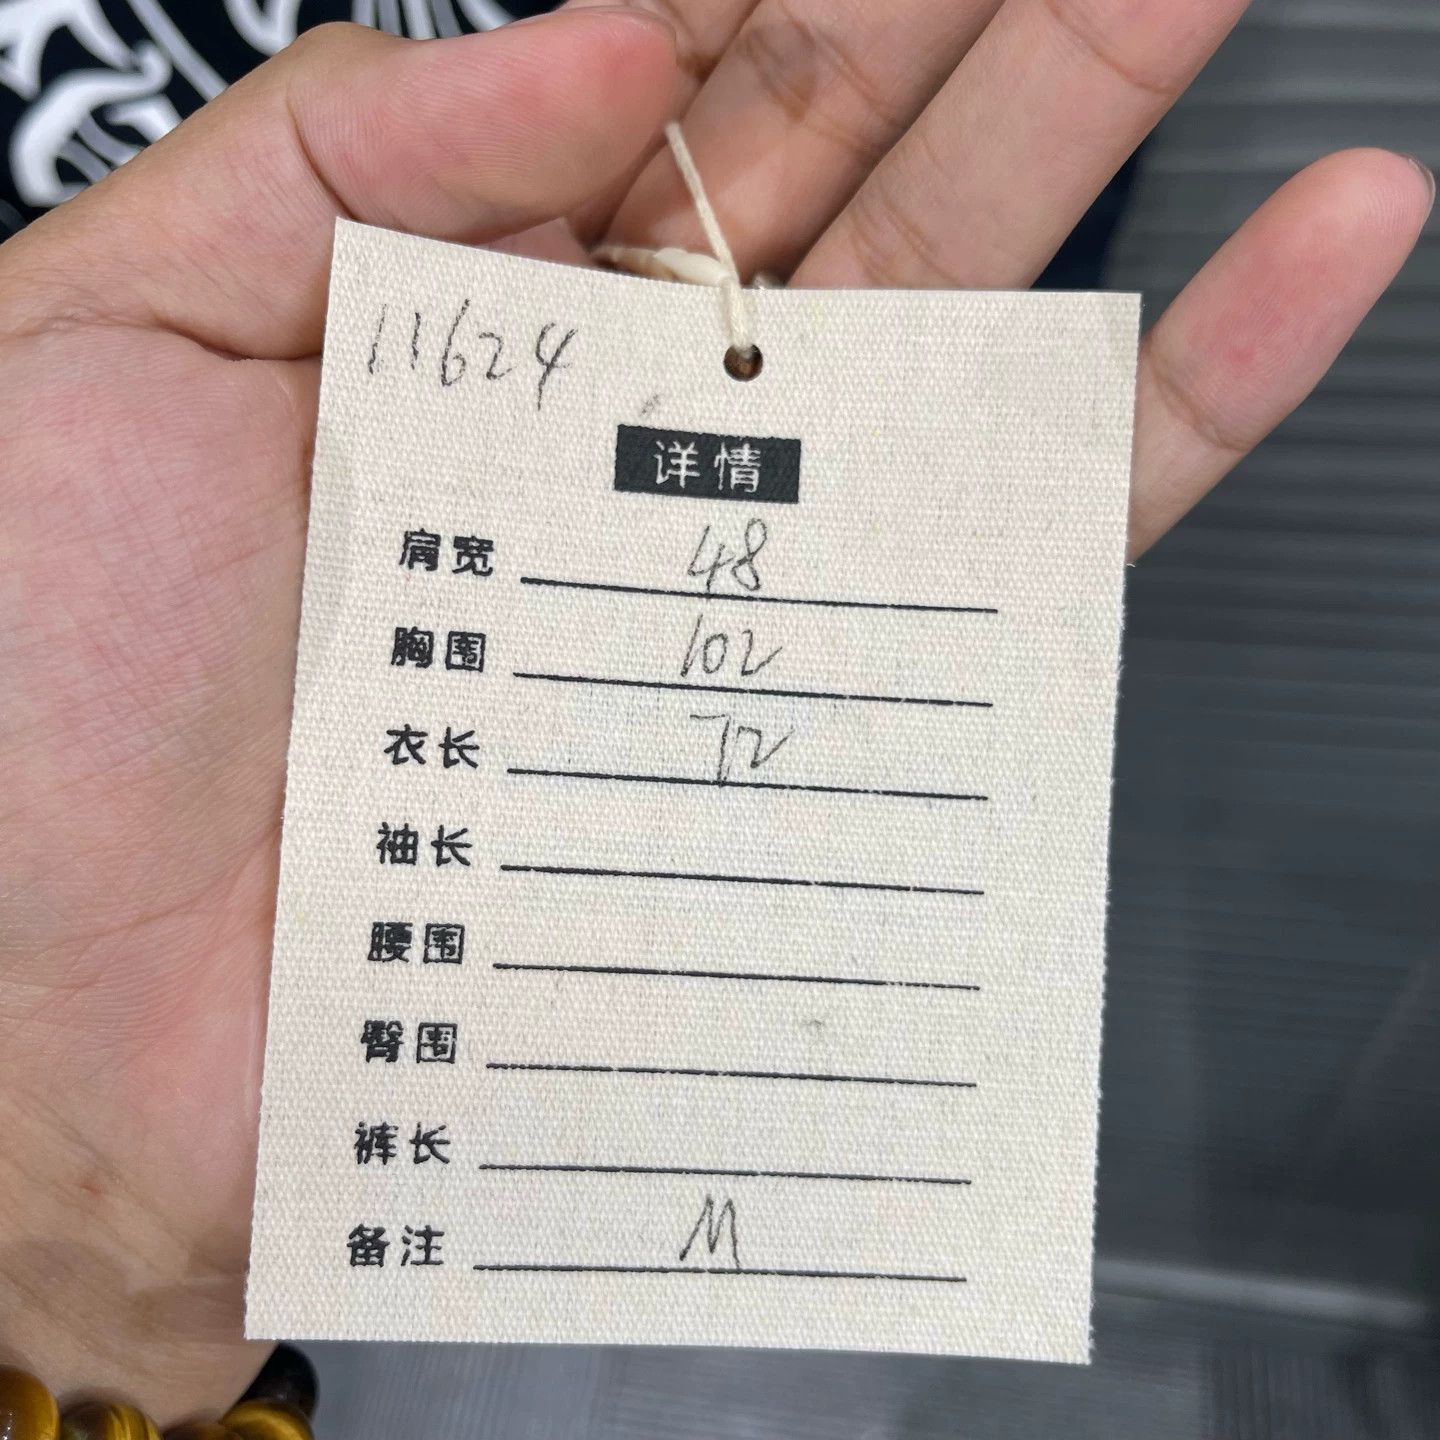 11624
详情
肩宽 48
胸围 102
衣长 72
袖长
腰围
臀围
裤长
备注 M